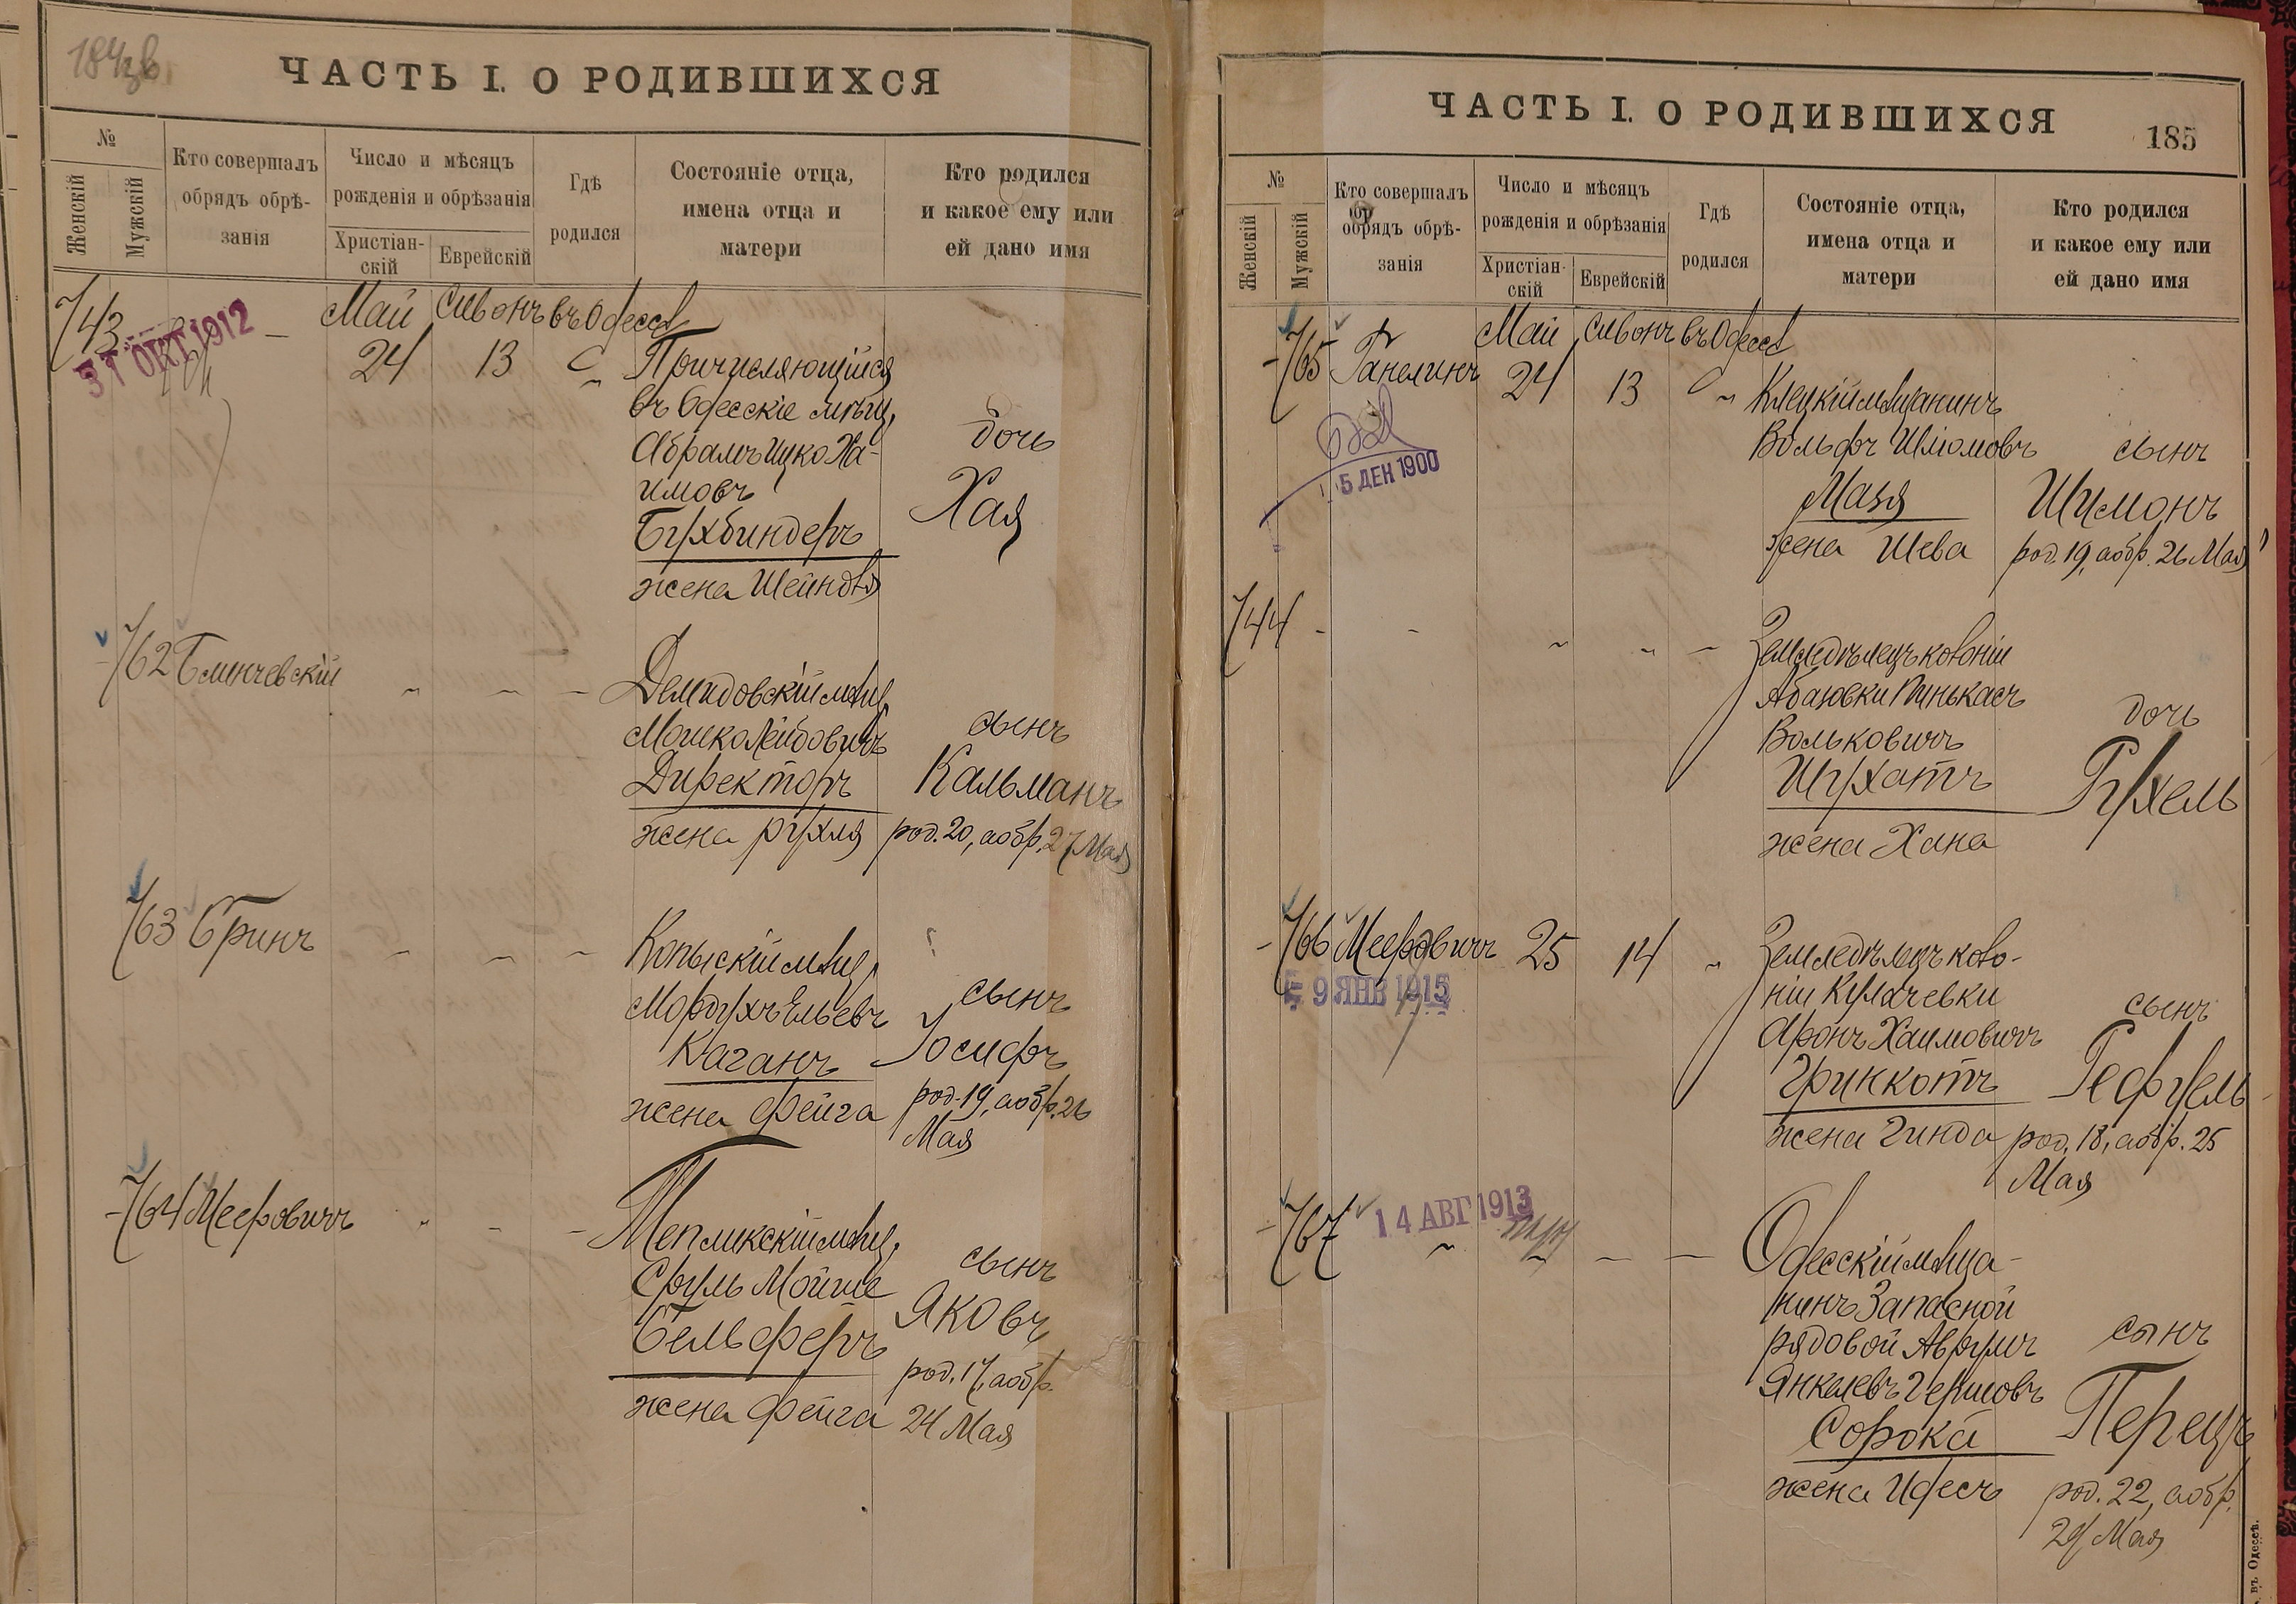 184
ЧАСТЬ I. О РОДИВШИХСЯ
№
Женскій
Мужскій
Кто совершалъ
обрядъ обрѣ-
занія
Число и мѣсяцъ
рожденія и обрѣзанія
Христіан-
скій
Еврейскій
Гдѣ
родился
Состояніе отца,
имена отца и
матери
Кто родился
и какое ему или
ей дано имя
743
31 ОКТ 1912
Май Сивонъ въ Одессѣ
24 13
Причисляющійся
въ Одесскіе мѣщ.
Абрамъ Ицко Ха-
имовъ
Бухбиндеръ
жена Шейндля
дочь
Хая
762 Блинчевскій
Демидовскій мѣщ.
Мошко Лейбовичъ
Директоръ
жена Рухля
сынъ
Кальманъ
род. 20, а обр. 27 Мая
763 Бринъ
Копыскій мѣщ.
Мордухъ Ельевъ
Каганъ
жена Фейга
сынъ
Іосифъ
род. 19, а обр. 26
Мая
764 Мееровичъ
Тепликскій мѣщ.
Сруль Мойше
Гельферъ
жена Фейга
сынъ
Яковъ
род. 17, а обр.
24 Мая
ЧАСТЬ I. О РОДИВШИХСЯ
185
№
Женскій
Мужскій
Кто совершалъ
обрядъ обрѣ-
занія
Число и мѣсяцъ
рожденія и обрѣзанія
Христіан-
скій
Еврейскій
Гдѣ
родился
Состояніе отца,
имена отца и
матери
Кто родился
и какое ему или
ей дано имя
765 Ганелинъ
5 ДЕК 1900
Май Сивонъ въ Одессѣ
24 13
Клецкій мѣщанинъ
Вольфъ Шліомовъ
Мазя
жена Шева
сынъ
Шимонъ
род. 19, а обр. 26 Мая
744
Земледѣлецъ колоніи
Абазовки Пинькасъ
Вольковичъ
Шухатъ
жена Хана
дочь
Рухель
766 Мееровичъ 25 14
9 ЯНВ 1915
Земледѣлецъ коло-
ніи Кулачевки
Аронъ Хаимовичъ
Гринкотъ
жена Гинда
сынъ
Рефуель
род. 18, а обр. 25
Мая
767
14 АВГ 1913
Одесскій мѣща-
нинъ Запасной
рядовой Аврумъ
Янкелевъ Гершовъ
Сорока
жена Идесъ
сынъ
Перецъ
род. 22, а обр.
29 Мая
въ Одессѣ.